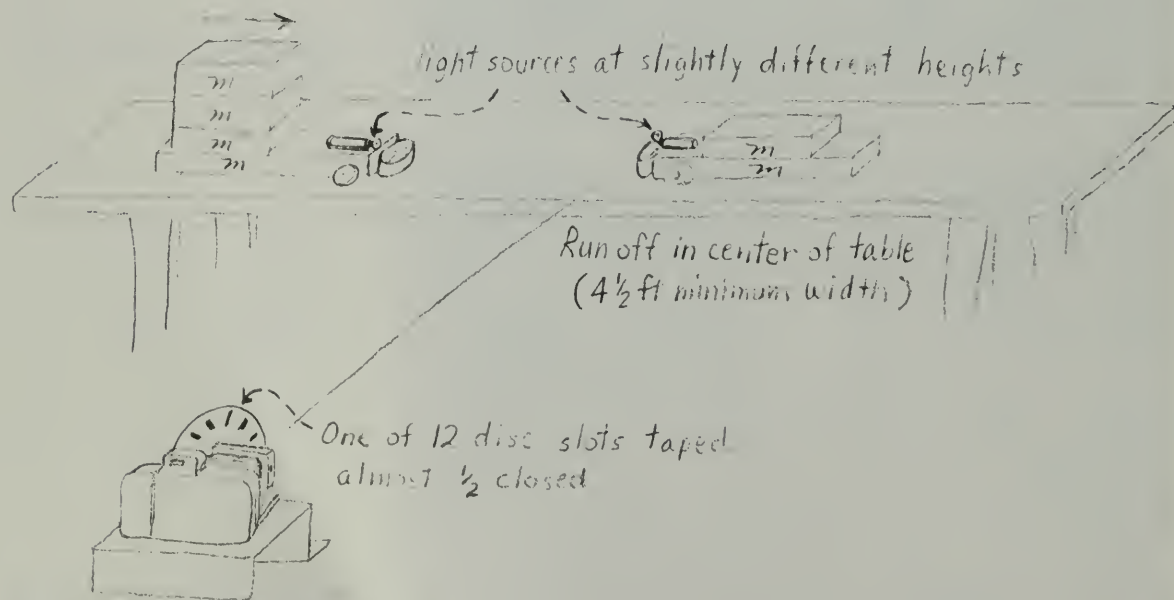 light sources at slightly different heights
m
m
m
m
m
m
Run off in center of table
(4½ ft minimum width)
One of 12 disc slots taped
almost ½ closed